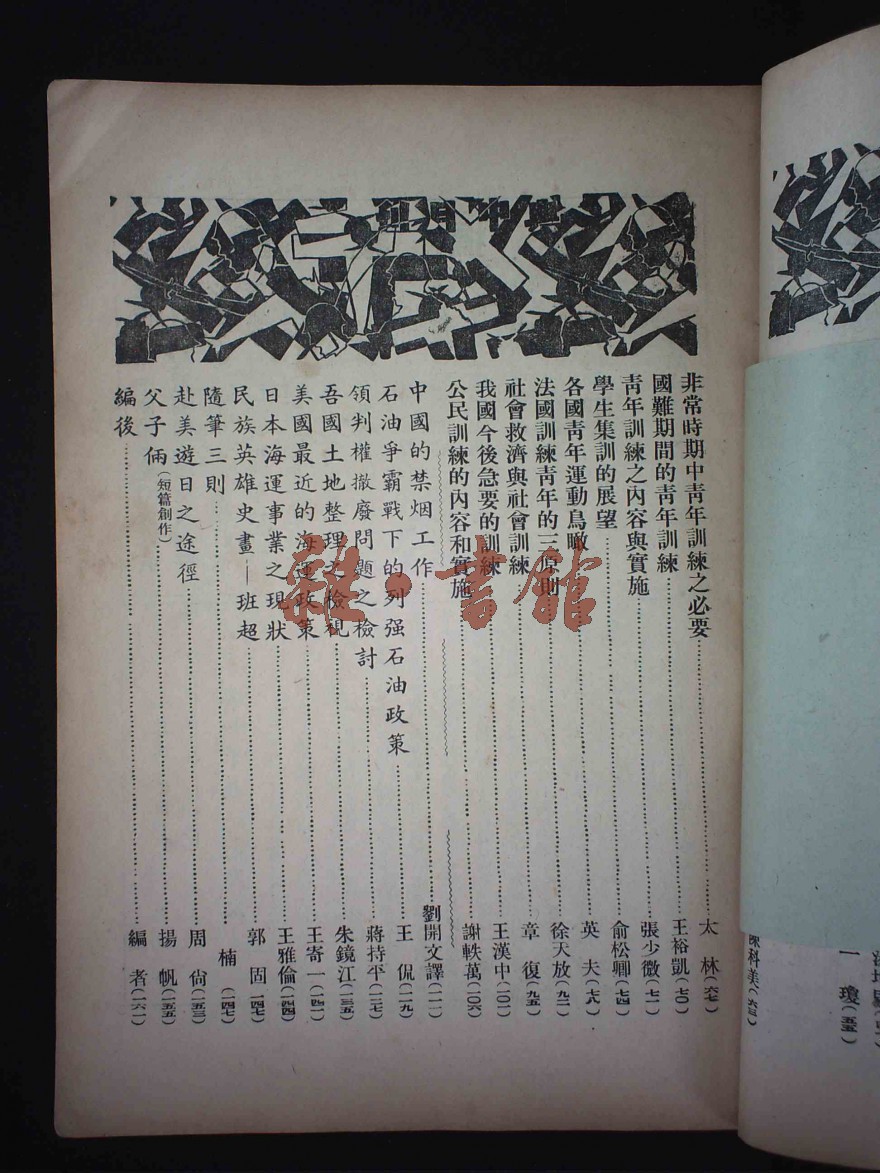 非常時期中青年訓練之必要 太林(六七)
國難期間的青年訓練 王裕凱(七〇)
青年訓練之內容與實施 張少微(七一)
學生集訓的展望 俞松卿(七四)
各國青年運動鳥瞰 英夫(七八)
法國訓練青年的三原則 徐天放(九二)
社會救濟與社會訓練 章復(九五)
我國今後急要的訓練 王漢中(一〇一)
公民訓練的內容和實施 謝軼萬(一〇六)
中國的禁烟工作 劉開文譯(一一一)
石油爭霸戰下的列强石油政策 王侃(一一九)
領判權撤廢問題之檢討 蔣持平(一二七)
吾國土地整理之檢視 朱鏡江(一三五)
美國最近的海運政策 王寄一(一四一)
日本海運事業之現狀 王雅倫(一四四)
民族英雄史畫—班超 郭固(一四七)
隨筆三則 楠(一四七)
赴美遊日之途徑 周尙(一五三)
父子倆(短篇創作) 揚帆(一五五)
編後 編者(一六一)
陳科美(六三)
一瓊(五五)
雜·書館